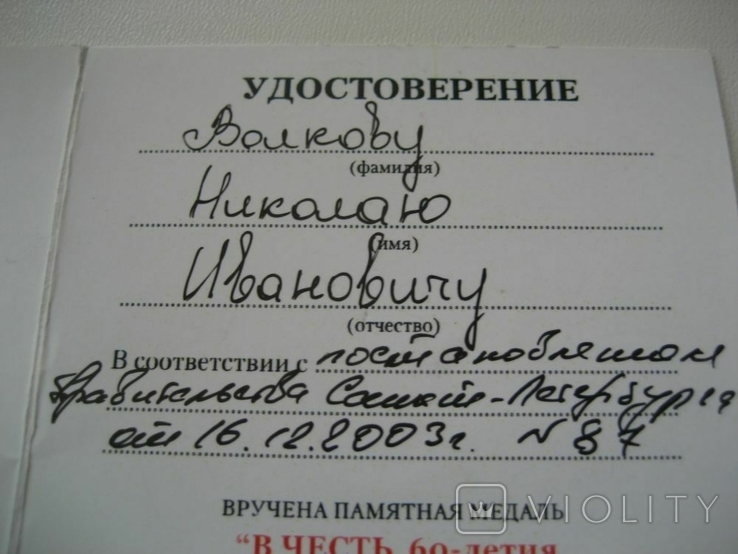 УДОСТОВЕРЕНИЕ
Волкову
(фамилия)
Николаю
(имя)
Ивановичу
(отчество)
В соответствии с постановлением
Правительства Санкт-Петербурга
от 16.12.2003г. N 87
ВРУЧЕНА ПАМЯТНАЯ МЕДАЛЬ
"В ЧЕСТЬ 60-летия
VIOLITY